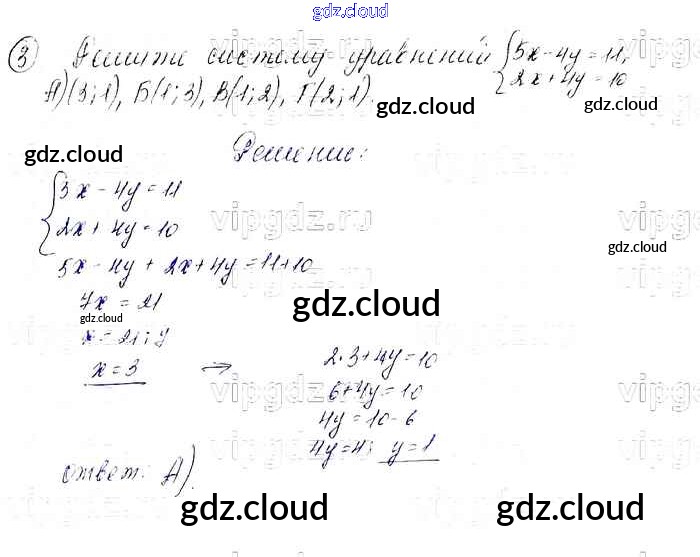 gdz.cloud
③ Решите систему уравнений { 5x - 4y = 11,
2x + 4y = 10
А) (3; 1), Б(1; 3), В(1; 2), Г(2; 1).
gdz.cloud
gdz.cloud
Решение:
{ 5x - 4y = 11
vipgdz.ru
2x + 4y = 10
gdz.cloud
5x - 4y + 2x + 4y = 11 + 10
7x = 21
gdz.cloud
gdz.cloud
x = 21 : 7
x = 3 ⇒
2·3 + 4y = 10
6 + 4y = 10
vipgdz.ru
4y = 10 - 6
4y = 4; y = 1
Ответ: А).
gdz.cloud
gdz.cloud